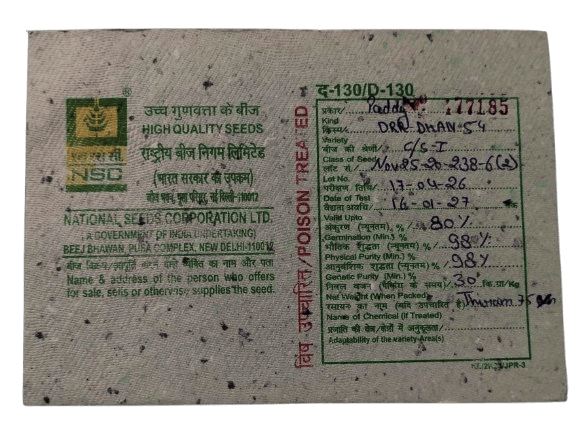 एन एस सी
NSC
®
उच्च गुणवत्ता के बीज
HIGH QUALITY SEEDS
राष्ट्रीय बीज निगम लिमिटेड
(भारत सरकार का उपक्रम)
बीज भवन, पूसा परिसर, नई दिल्ली-110012
NATIONAL SEEDS CORPORATION LTD.
(A GOVERNMENT OF INDIA UNDERTAKING)
BEEJ BHAWAN, PUSA COMPLEX, NEW DELHI-110012
बीज विक्रय/आपूर्ति करने वाले व्यक्ति का नाम और पता
Name & address of the person who offers
for sale, sells or otherwise supplies the seed.
विष उपचारित/POISON TREATED
द-130/D-130
प्रकार/ Paddy 177185
Kind
किस्म/ DRR DHAN-54
Variety
बीज की श्रेणी/ C/S-I
Class of Seed
लॉट सं./ Nov25-20-238-6(2)
Lot No.
परीक्षण तिथि/ 17-04-26
Date of Test
वैधता अवधि/ 16-01-27
Valid Upto
अंकुरण (न्यूनतम) %/ 80%
Germination (Min.) %
भौतिक शुद्धता (न्यूनतम) %/ 98%
Physical Purity (Min.) %
आनुवंशिक शुद्धता (न्यूनतम) %/ 98%
Genetic Purity (Min.) %
निवल वजन (पैकिंग के समय)/ 30 कि.ग्रा/Kg
Net Weight (When Packed)
रसायन का नाम (यदि उपचारित है) Thiram 75
Name of Chemical (If Treated)
प्रजाति की क्षेत्र/क्षेत्रों में अनुकूलता/
Adaptability of the variety-Area(s)
/JPR-3